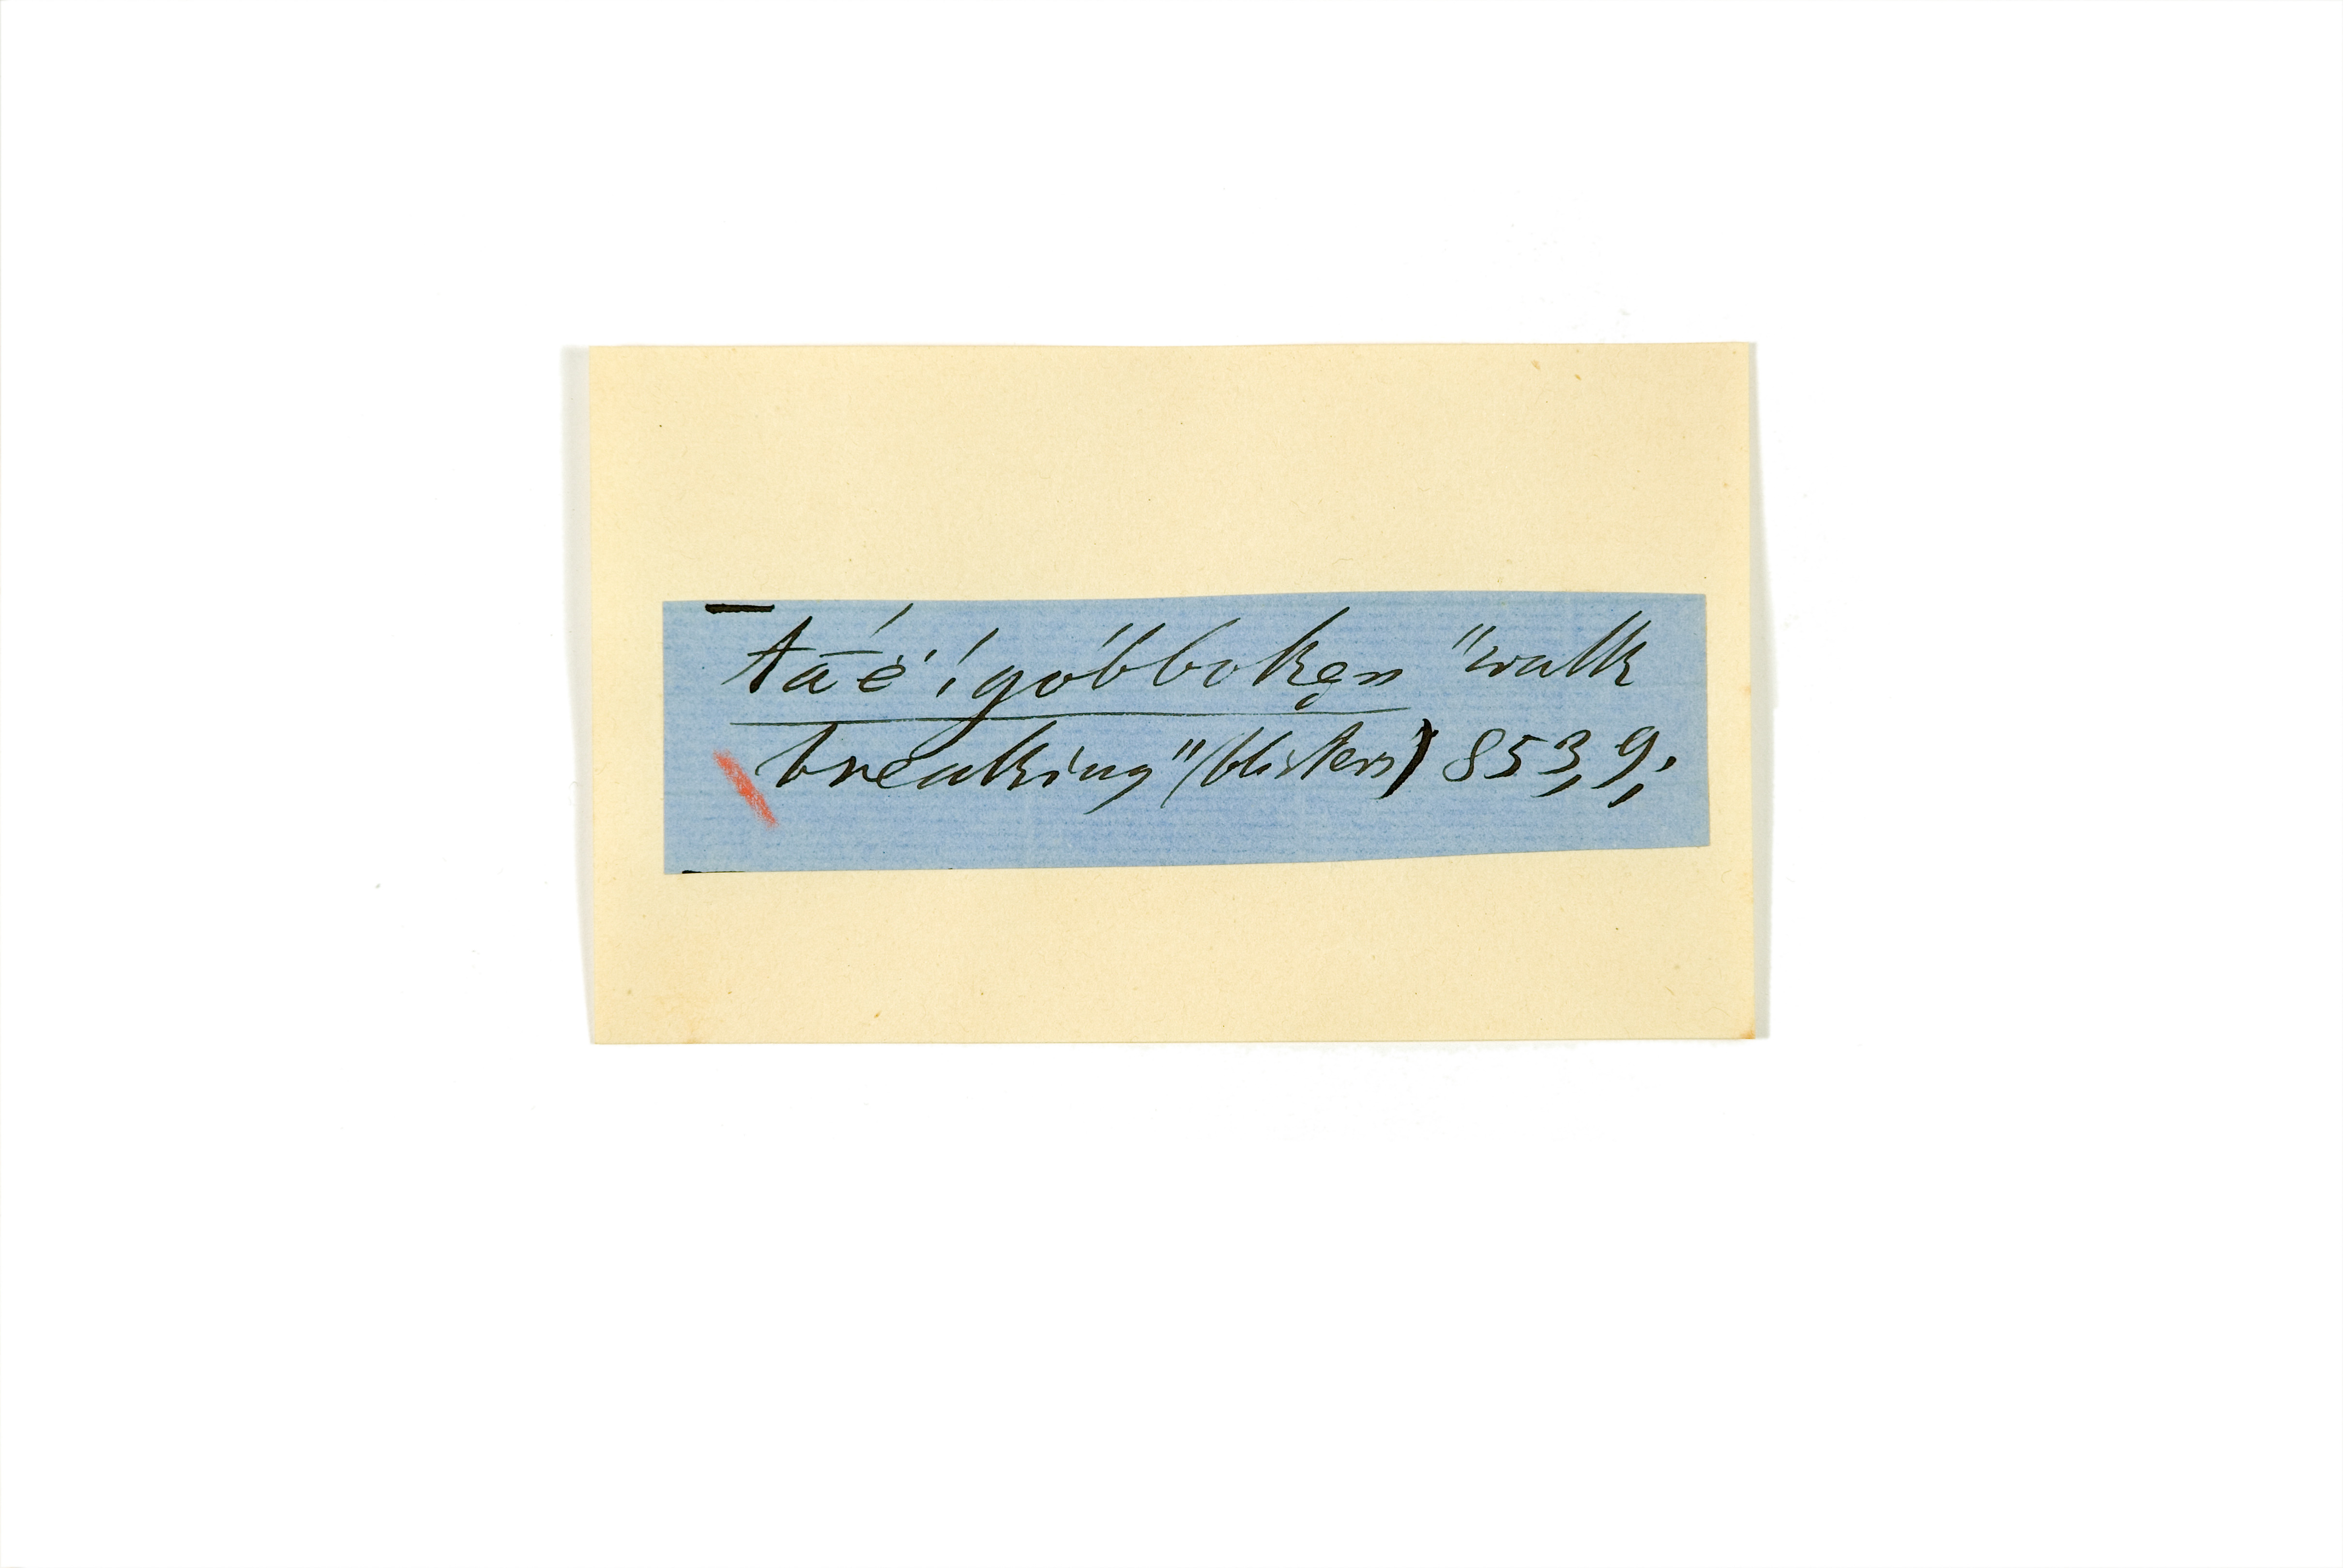 tā-é̆ ¡góbbokẹn "walk
breaking" (blisters) 853,9;